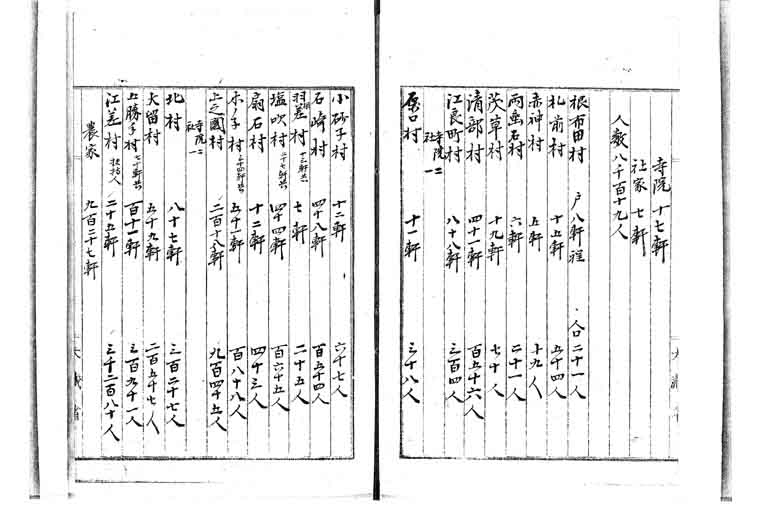 寺院 十七軒
社家 七軒
人数八千百十九人
根布田村 戸八軒程 人口二十一人
札前村 十五軒 五十四人
赤神村 五軒 十九人
雨垂石村 六軒 二十一人
茂草村 十九軒 七十人
清部村 四十一軒 百五十六人
江良町村 八十八軒 三百四人
寺院 二
社 一
原口村 十一軒 三十八人
大蔵省
小砂子村 十二軒 六十七人
石崎村 四十八軒 百五十四人
羽差村 七軒 二十五人
塩吹村 四十四軒 百六十五人
扇石村 十二軒 四十三人
木ノ子村 五十一軒 百八十八人
上之國村 二百十八軒 九百四十五人
寺院 二
社 一
北村 八十七軒 三百二十七人
大留村 五十九軒 二百五十七人
上勝手村 百十一軒 三百九十一人
江差村 扶持人 二十五軒 三千二百八十人
農家 九百二十七軒
大蔵省